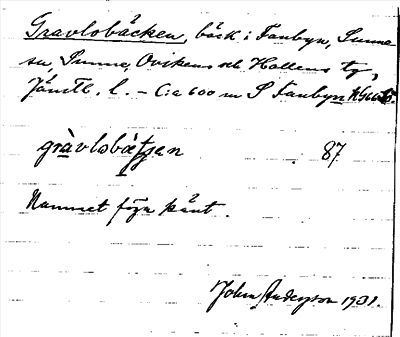 Gravlobäcken, bäck i Fanbyn, Sunne
sn, Sunne, Ovikens och Hallens tg,
Jämtl. l. – Ca 600 m S Fanbyn
gràvlobæ̀tjen 87
Namnet föga känt.
John Anderson 1931.